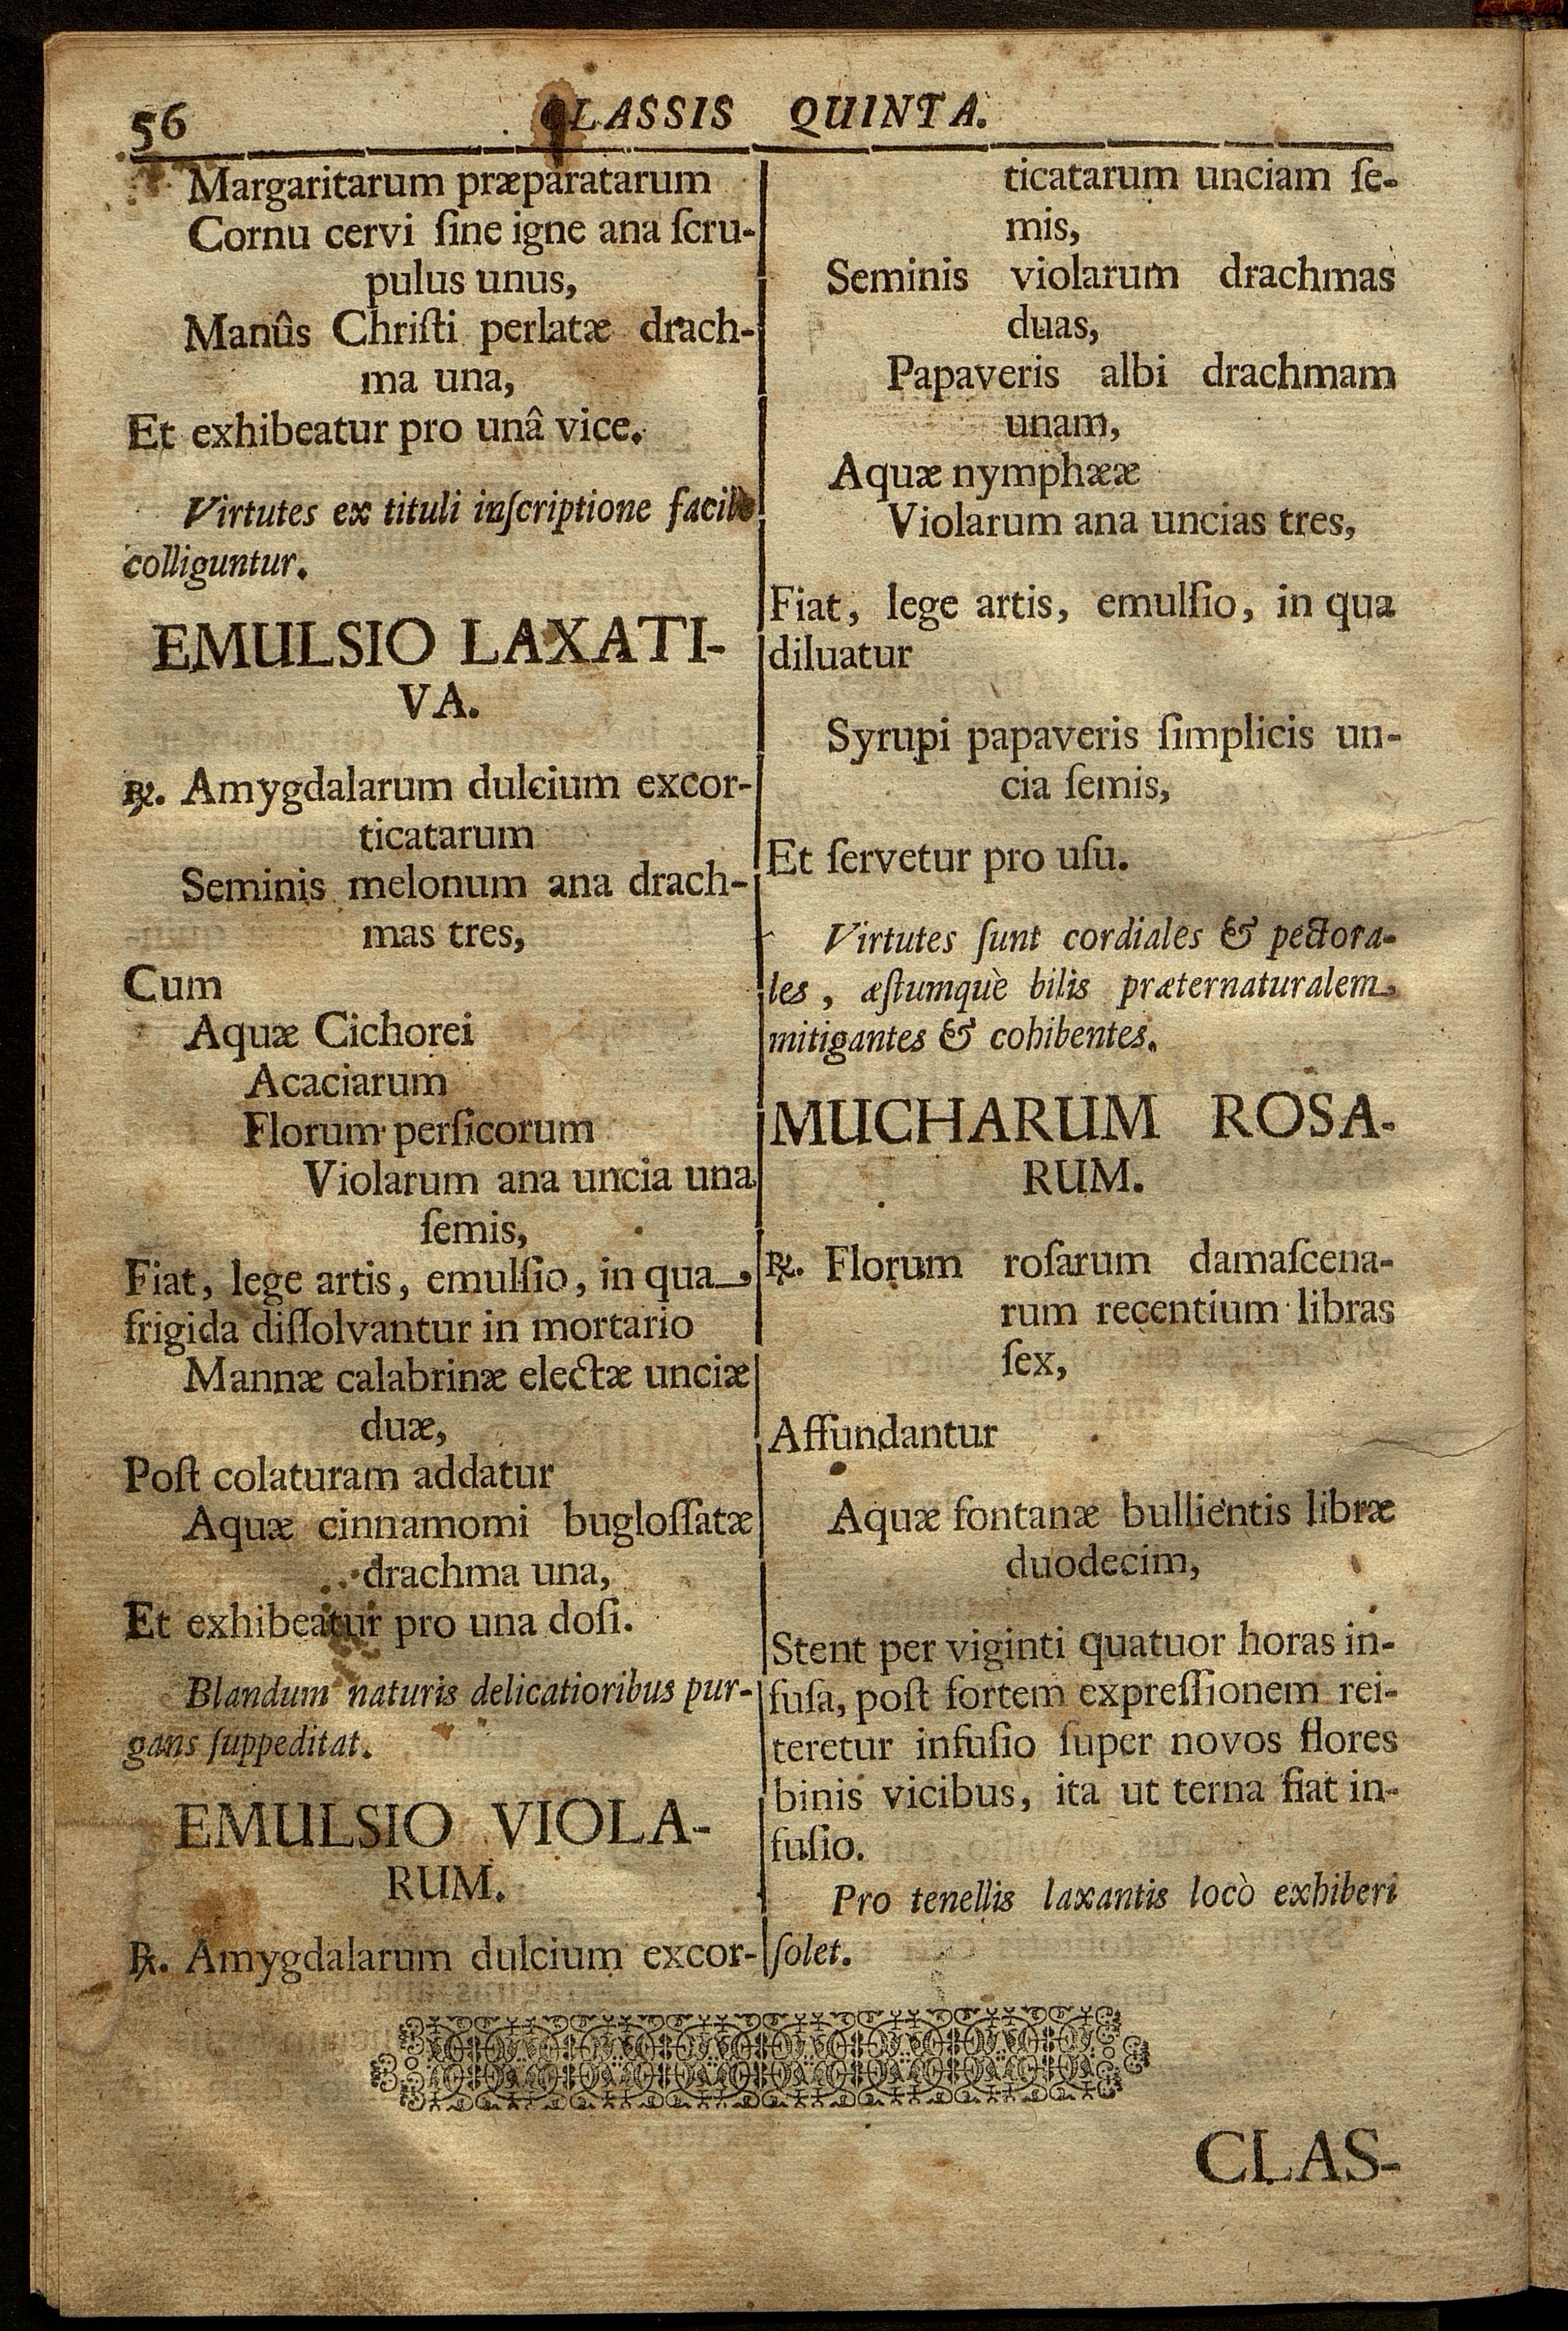 56
CLASSIS QUINTA.
Margaritarum præparatarum
Cornu cervi ſine igne ana ſcru-
pulus unus,
Manûs Chriſti perlatæ drach-
ma una,
Et exhibeatur pro unâ vice.
Virtutes ex tituli inſcriptione facilè
colliguntur.
EMULSIO LAXATI-
VA.
℞. Amygdalarum dulcium excor-
ticatarum
Seminis melonum ana drach-
mas tres,
Cum
Aquæ Cichorei
Acaciarum
Florum perſicorum
Violarum ana uncia una
ſemis,
Fiat, lege artis, emulſio, in qua
frigida diſſolvantur in mortario
Mannæ calabrinæ electæ unciæ
duæ,
Poſt colaturam addatur
Aquæ cinnamomi bugloſſatæ
drachma una,
Et exhibeatur pro una doſi.
Blandum naturis delicatioribus pur-
gans ſuppeditat.
EMULSIO VIOLA-
RUM.
℞. Amygdalarum dulcium excor-
ticatarum unciam ſe-
mis,
Seminis violarum drachmas
duas,
Papaveris albi drachmam
unam,
Aquæ nymphææ
Violarum ana uncias tres,
Fiat, lege artis, emulſio, in qua
diluatur
Syrupi papaveris ſimplicis un-
cia ſemis,
Et ſervetur pro uſu.
Virtutes ſunt cordiales & pectora-
les, æſtumquè bilis præternaturalem
mitigantes & cohibentes.
MUCHARUM ROSA-
RUM.
℞. Florum roſarum damaſcena-
rum recentium libras
ſex,
Affundantur
Aquæ fontanæ bullientis libræ
duodecim,
Stent per viginti quatuor horas in-
fuſa, poſt fortem expreſſionem rei-
teretur infuſio ſuper novos flores
binis vicibus, ita ut terna fiat in-
fuſio.
Pro tenellis laxantis locò exhiberi
ſolet.
CLAS-